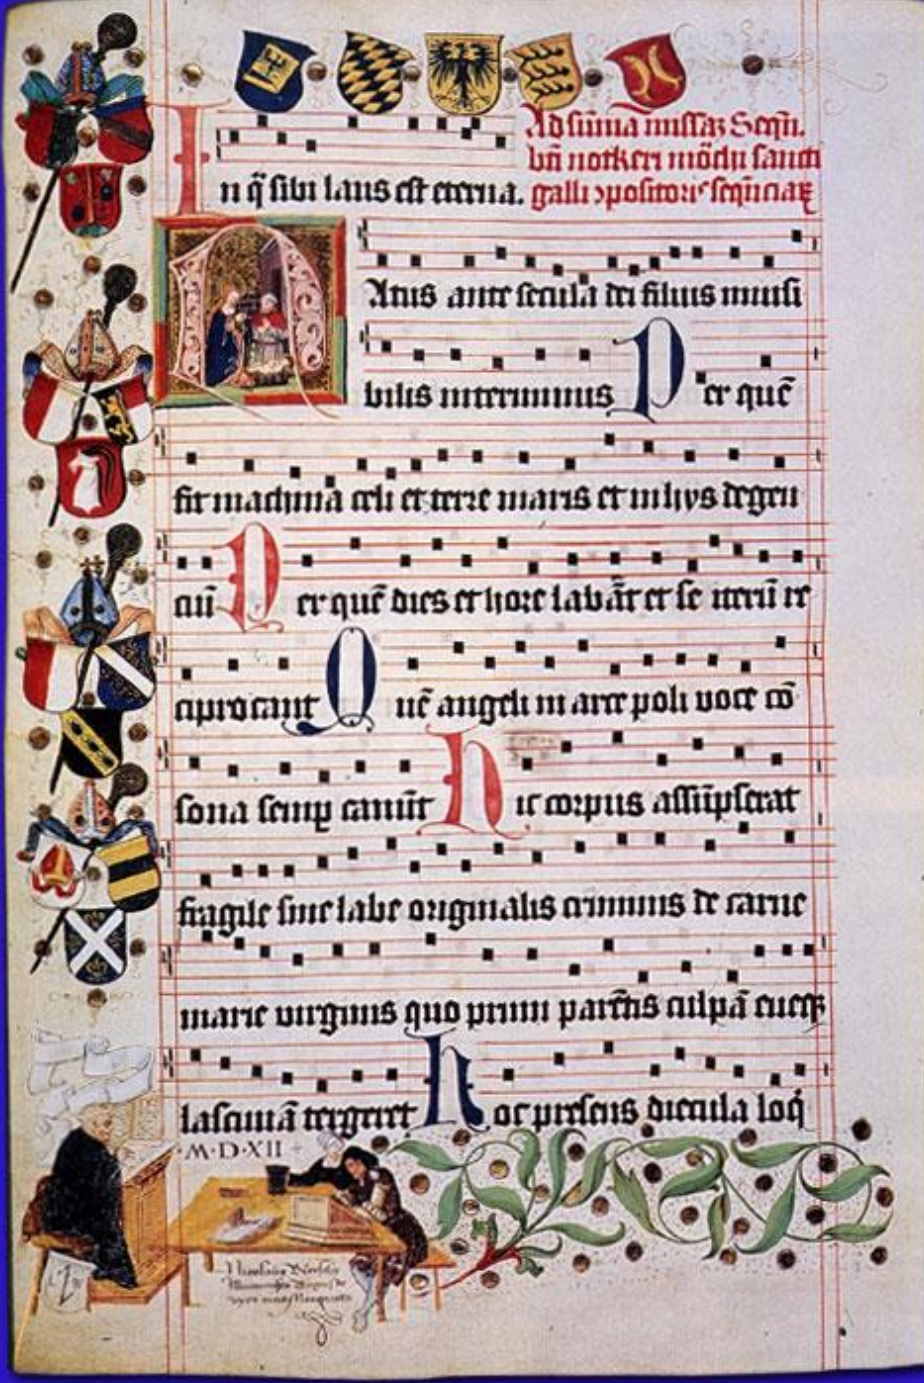 Ad sūmā missaʒ Seqū.
bti notkeri mōchi sancti
In q̄ sibi laus est eterna. galli ɔpositoris seqūciaꝝ
Natus ante secula dei filius inuisi
bilis interminus Per quē
fit machina celi et terre maris et in hys degen
ciū Per quē dies et hore labāt et se iterū re
ciprocant Quē angeli in arce poli voce cō
sona semꝑ canūt Hic corpus assūpserat
fragile sine labe originalis criminis de carne
marie virginis quo primi parētis culpā eueqꝫ
lasciuiā tergeret Hoc presens diecula loq̇
·M·D·XII